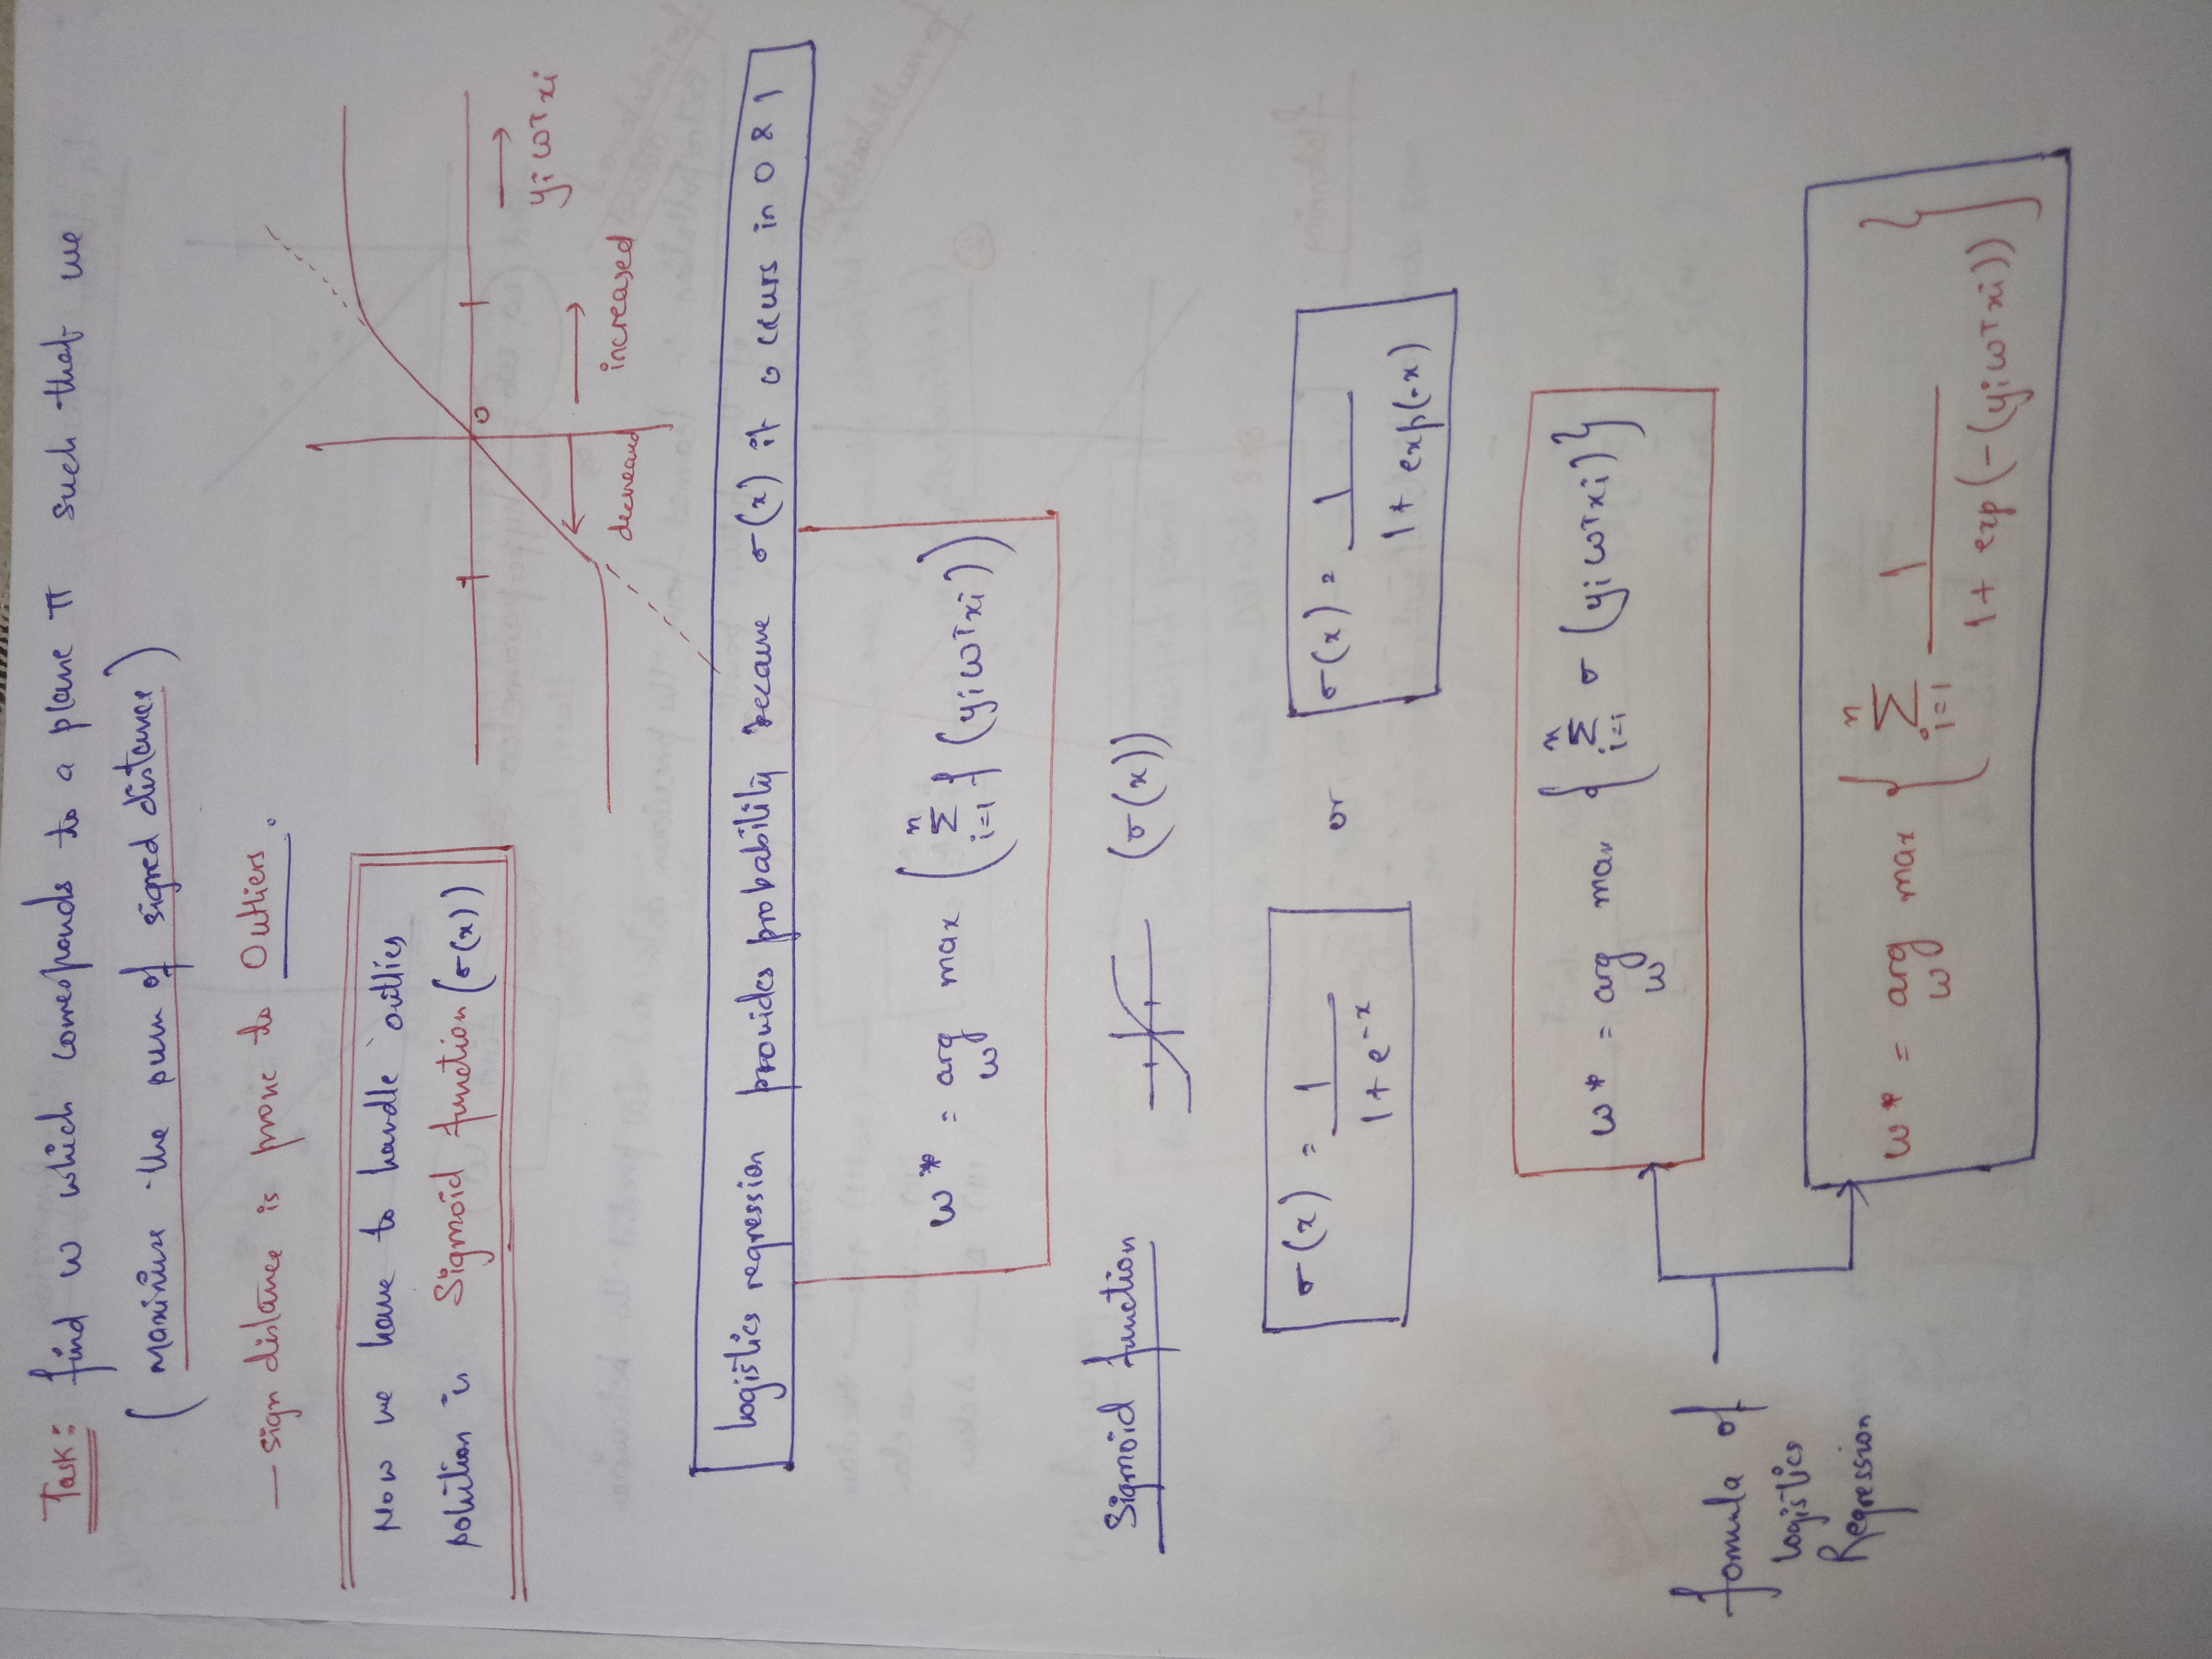 Task: find w which corresponds to a plane π such that we
(maximise the sum of signed distance)
— sign distance is prone to Outliers.
Now we have to handle outlies
solution is Sigmoid function (σ(x))
0
yi wT xi
decreased
increased
logistics regression provides probability because σ(x) it occurs in 0 & 1
w* = arg max ( n Σ i=1 f (yi wT xi) )
w
Sigmoid function (σ(x))
σ(x) = 1 / 1 + e^-x or σ(x) = 1 / 1 + exp(-x)
w* = arg max { n Σ i=1 σ (yi wT xi) }
w
formula of
logistics
Regression
w* = arg max { n Σ i=1 1 / 1 + exp(-(yi wT xi)) }
w